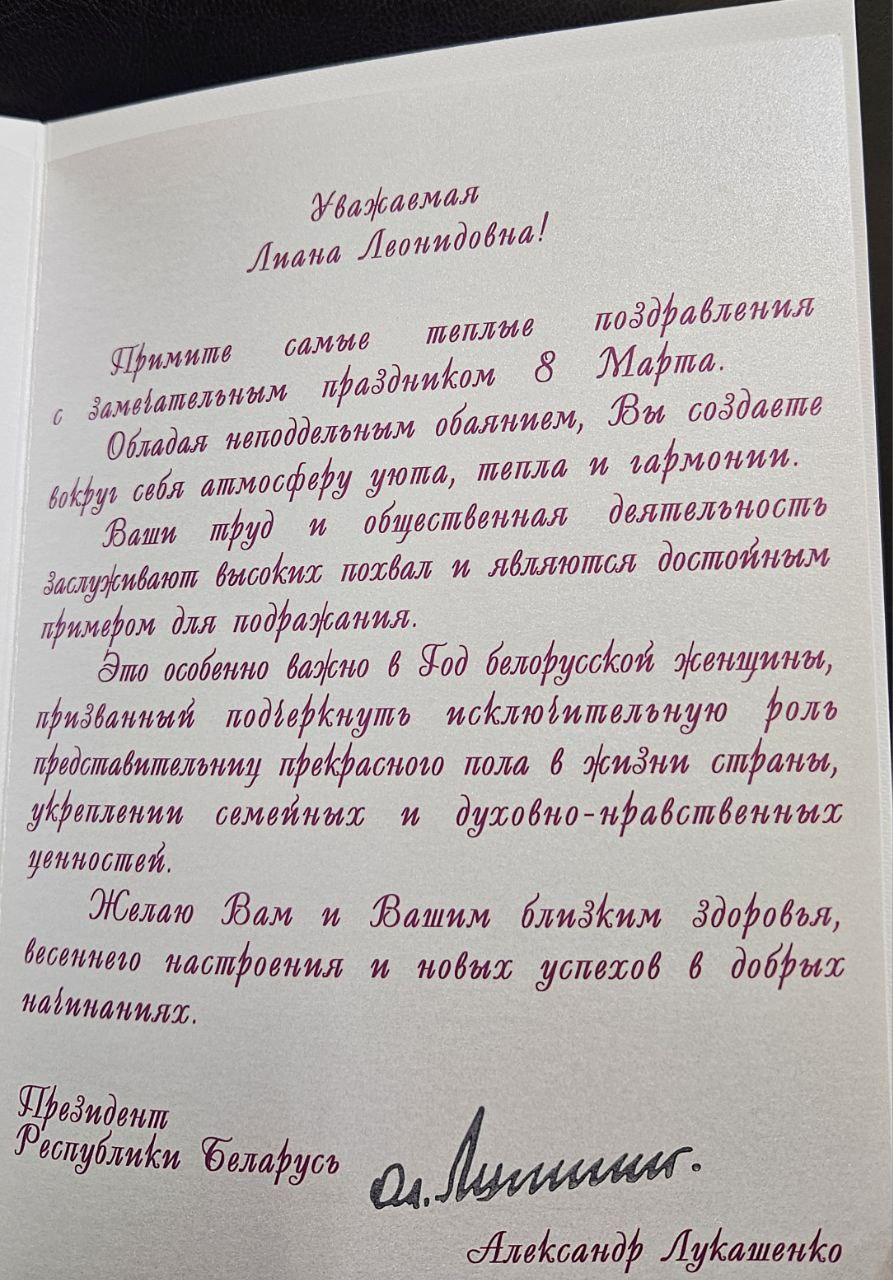 Уважаемая
Лиана Леонидовна!
Примите самые теплые поздравления
с замечательным праздником 8 Марта.
Обладая неподдельным обаянием, Вы создаете
вокруг себя атмосферу уюта, тепла и гармонии.
Ваши труд и общественная деятельность
заслуживают высоких похвал и являются достойным
примером для подражания.
Это особенно важно в Год белорусской женщины,
призванный подчеркнуть исключительную роль
представительниц прекрасного пола в жизни страны,
укреплении семейных и духовно-нравственных
ценностей.
Желаю Вам и Вашим близким здоровья,
весеннего настроения и новых успехов в добрых
начинаниях.
Президент
Республики Беларусь
Александр Лукашенко